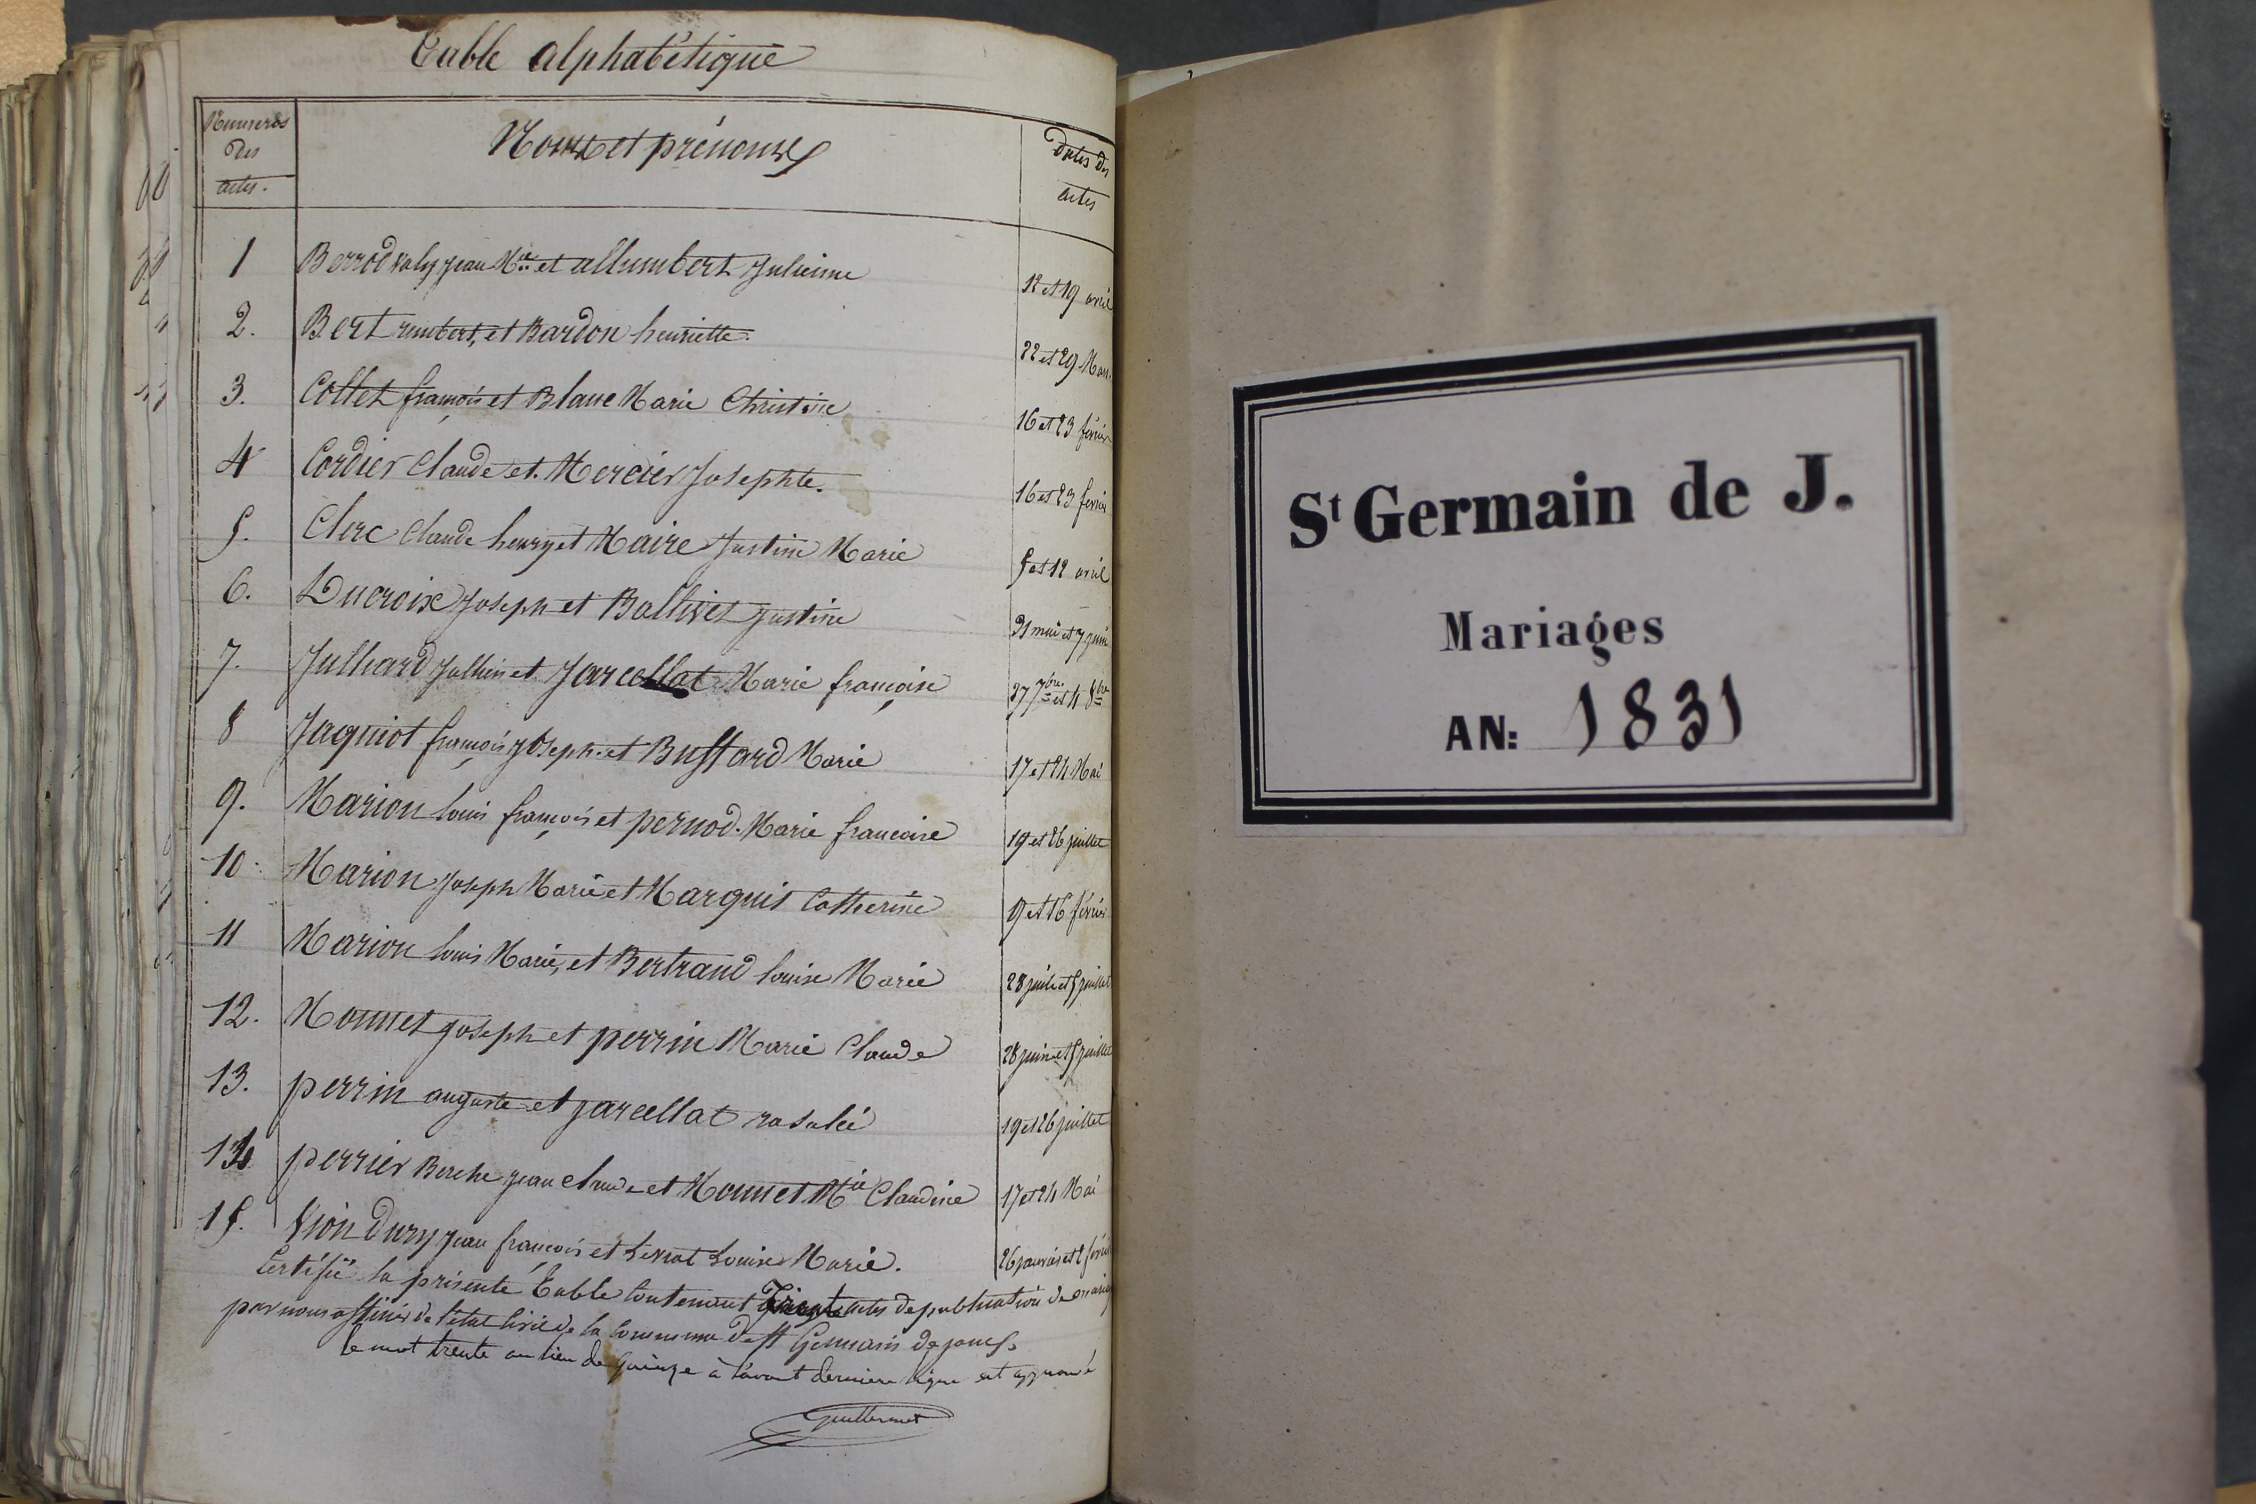 Table alphabétique
Numeros
des
actes.
Noms et prénoms
Dates des
actes
1 Berrod valy jean Mie et allumbert Julienne 12 et 19 avril
2. Bert rambert, et Bardon henriette. 22 et 29 Mars
3. Collet françois et Blanc Marie Christine 16 et 23 fevrier
4 Cordier Claude et Mercier Josephte. 16 et 23 fevrier
5. Clerc Claude henry et Maire Justine Marie 5 et 12 avril
6. Ducroix Joseph et Ballivet justine 31 mai et 7 juin
7. Julliard Jullien et Jarcellat Marie françoise 27 7bre et 4 8bre
8 Jaquiot françois Joseph et Buffard Marie 17 et 24 Mai
9. Marion louis françois et pernod Marie francoise 19 et 26 juillet
10. Marion Joseph Marie et Marquis Catherine 9 et 16 février
11 Marion louis Marie, et Bertrand louise Marie 28 juin et 5 juillet
12. Monnet joseph et perrin Marie Claude 28 juin et 5 juillet
13. perrin auguste et jarcellat rosalie 19 et 26 juillet
14 perrier Berche jean claude et Monnet Mie Claudine 17 et 24 Mai
15. Vion Dury jean françois et Louise Marie. 26 janvier et 2 février
Certifié la présente Table contenant trente actes de publication de mariage
par nous officier de l'état civil de la commune de St Germain de joux.
le mot trente au lieu de quinze à l'avant derniere ligne est approuvé
Guillermet
St Germain de J.
Mariages
AN: 1831